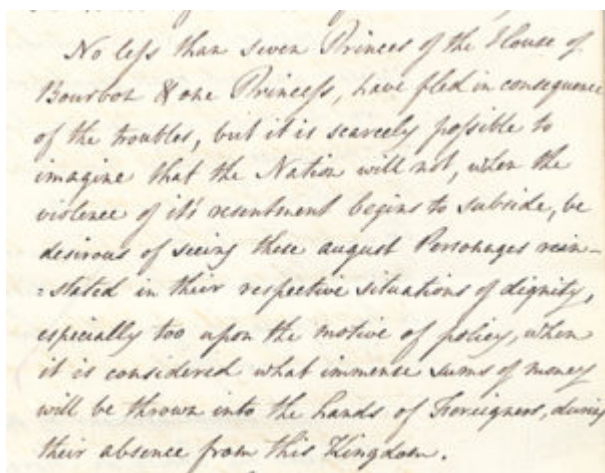 No less than seven Princes of the House of
Bourbon & one Princess, have fled in consequence
of the troubles, but it is scarcely possible to
imagine that the Nation will not, when the
violence of it's resentment begins to subside, be
desirous of seeing these august Personages rein-
=stated in their respective situations of dignity,
especially too upon the motive of policy, when
it is considered what immense sums of money
will be thrown into the hands of Foreigners, during
their absence from this Kingdom.